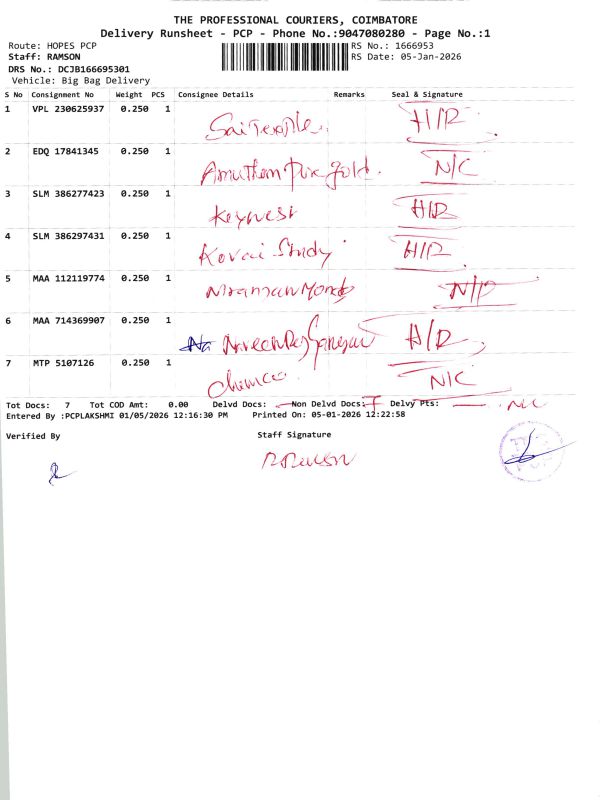 THE PROFESSIONAL COURIERS, COIMBATORE
Delivery Runsheet - PCP - Phone No.:9047080280 - Page No.:1
Route: HOPES PCP RS No.: 1666953
Staff: RAMSON RS Date: 05-Jan-2026
DRS No.: DCJB166695301
Vehicle: Big Bag Delivery
S No Consignment No Weight PCS Consignee Details Remarks Seal & Signature
1 VPL 230625937 0.250 1 Sai Temple H/R
2 EDQ 17841345 0.250 1 Amutham Pure gold. N/C
3 SLM 386277423 0.250 1 Keywest H/R
4 SLM 386297431 0.250 1 Kovai Study H/R
5 MAA 112119774 0.250 1 N/P
6 MAA 714369907 0.250 1 H/R
7 MTP 5107126 0.250 1 N/C
Tot Docs: 7 Tot COD Amt: 0.00 Delvd Docs: Non Delvd Docs: 7 Delvy Pts:
Entered By :PCPLAKSHMI 01/05/2026 12:16:30 PM Printed On: 05-01-2026 12:22:58
Verified By Staff Signature